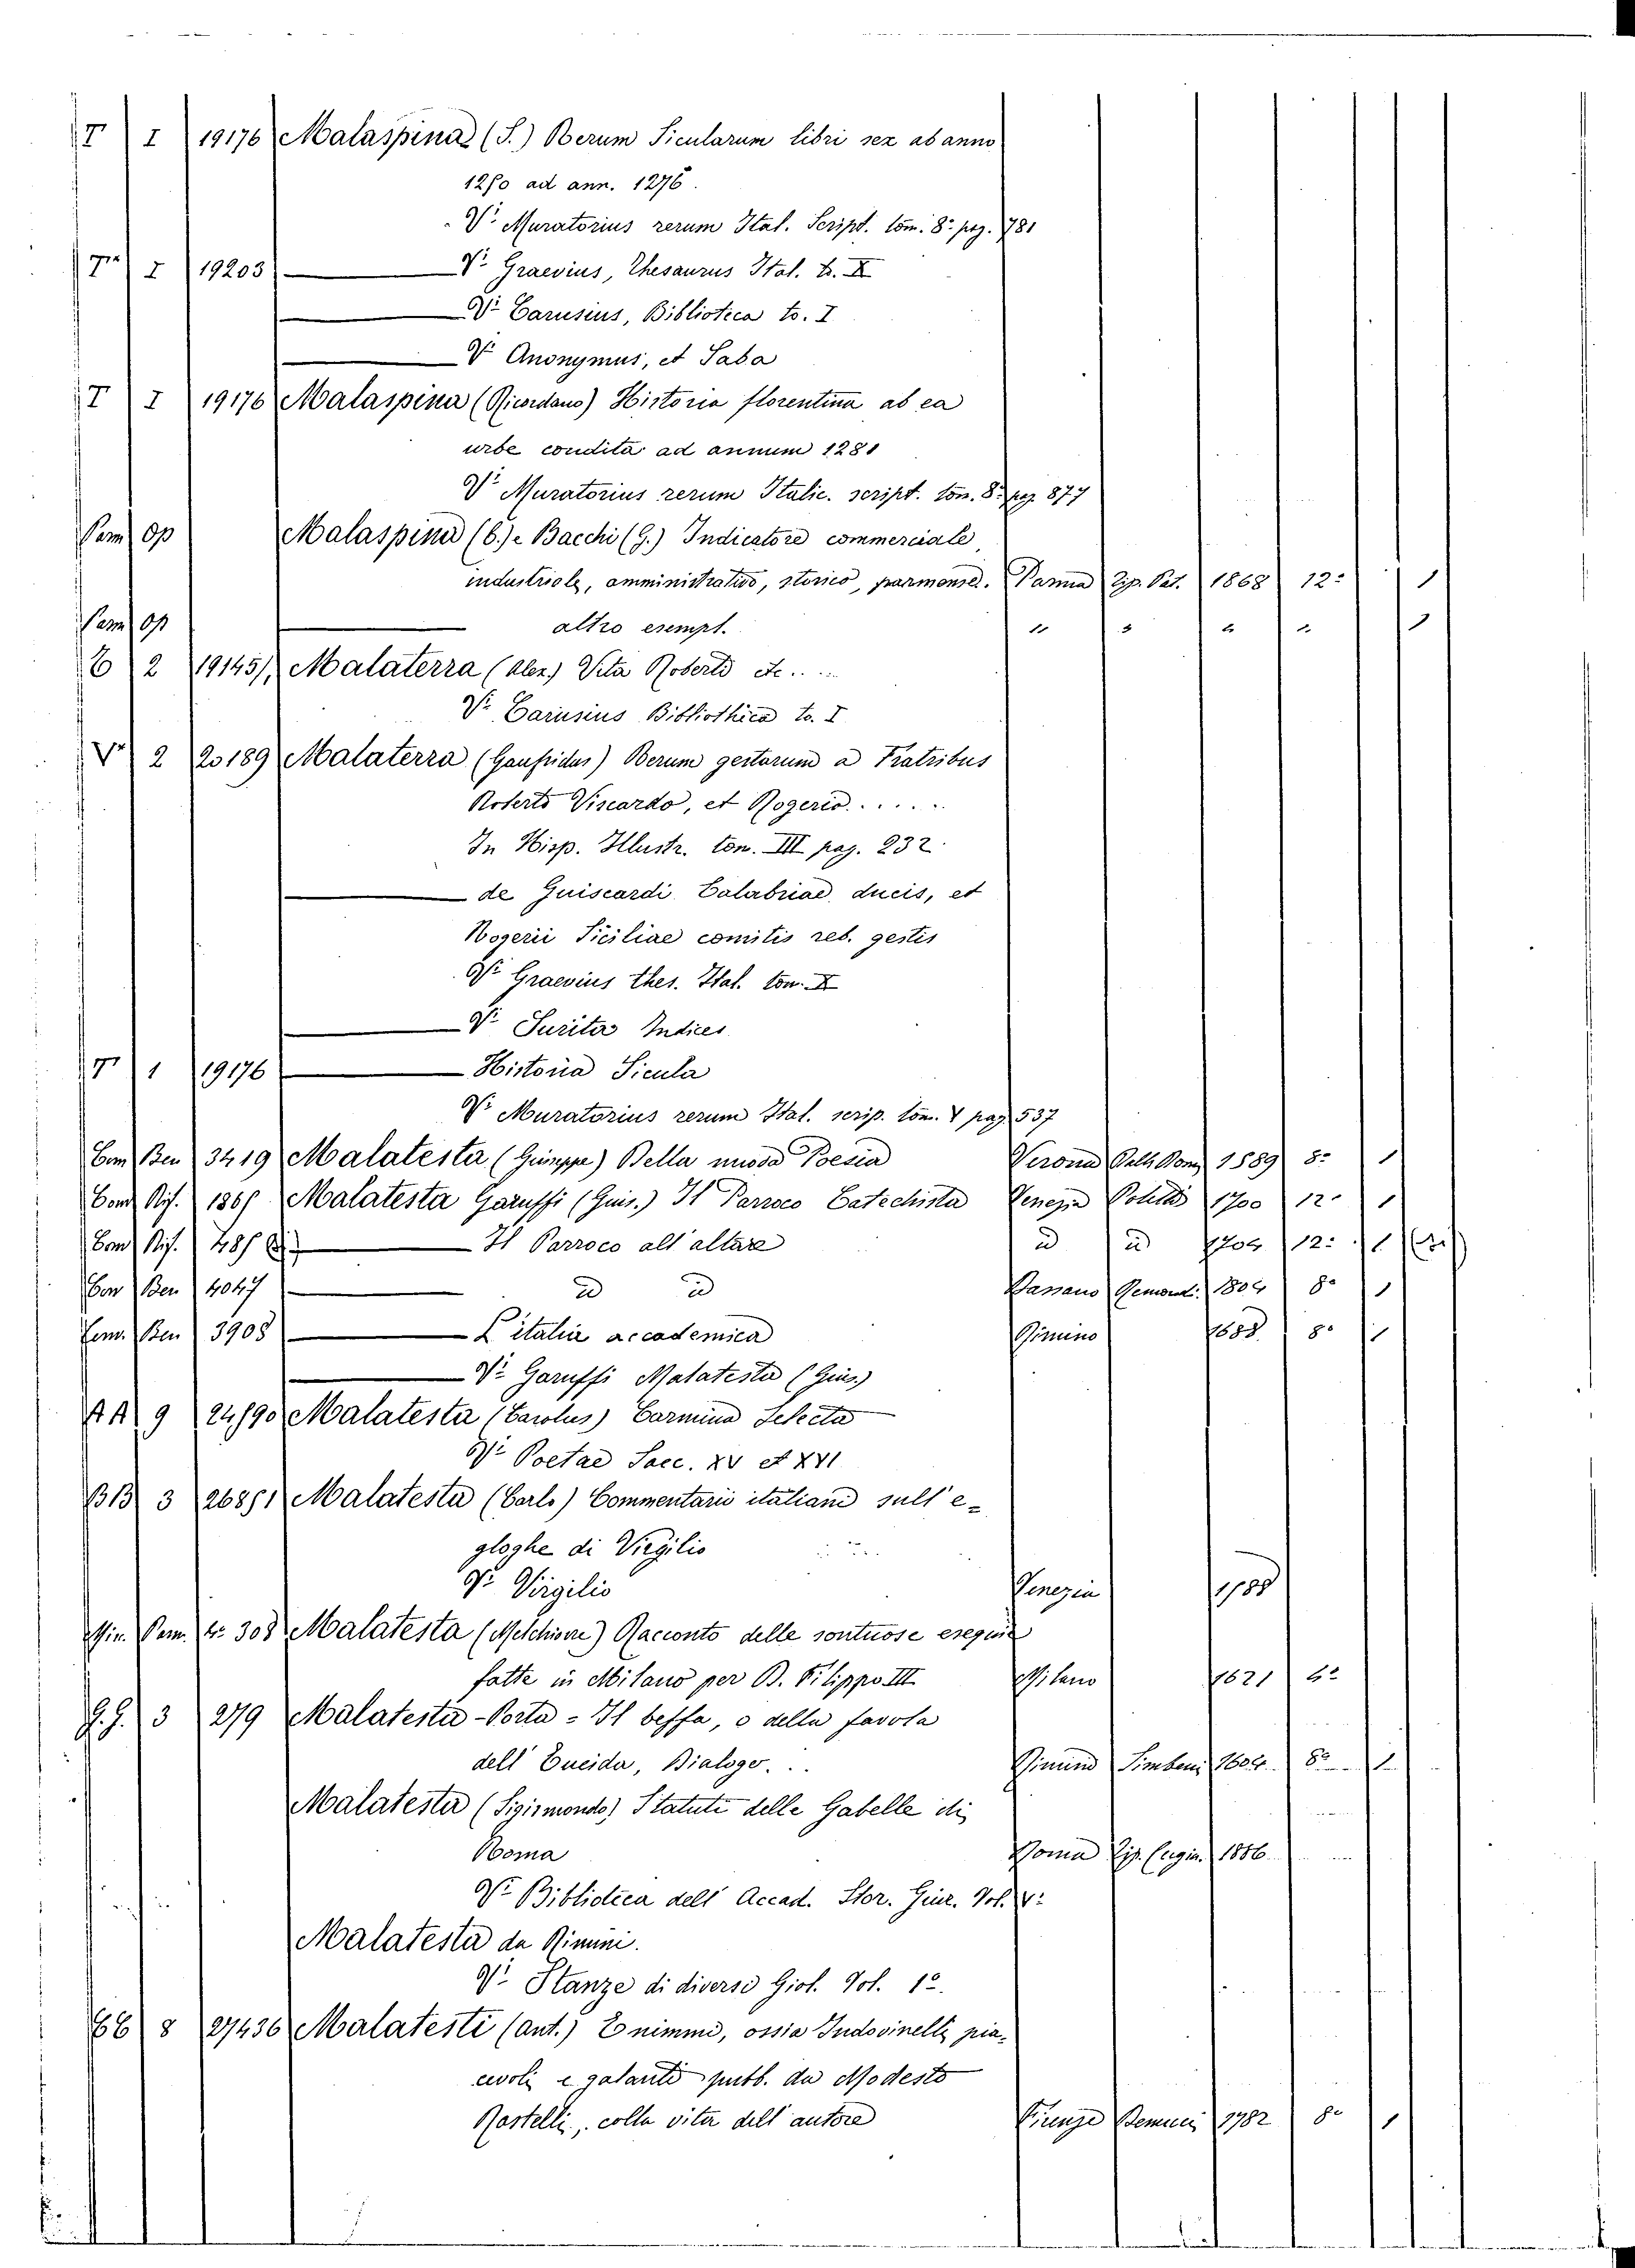 T I 19176 Malaspina (S.) Rerum Sicularum libri sex ab anno
1250 ad ann. 1276.
V. Muratorius rerum Ital. Script. tom. 8º pag. 781
Tª I 19203 V. Graevius, Thesaurus Ital. t. X
V. Carusius, Biblioteca to. I
V. Anonymus, et Saba
T I 19176 Malaspina (Ricordano) Historia florentina ab ea
urbe condita ad annum 1281
V. Muratorius rerum Italic. script. tom. 8º pag. 877
Pam Op Malaspina (C.) e Bacchi (G.) Indicatore commerciale,
industriale, amministrativo, storico, parmense. Parma Tip. Pat. 1868 12º 1
Pam Op altro esempl. " " " " 1
C 2 19145/2 Malaterra (Alex.) Vita Roberti etc....
V. Carusius Bibliothica to. I
Vª 2 20189 Malaterra (Gaufridus) Rerum gestarum a Fratribus
Roberto Viscardo, et Rogerio......
In Hisp. Illustr. tom. III pag. 232
de Guiscardi Calabriae ducis, et
Rogerii Siciliae comitis reb. gestis
V. Graevius thes. Ital. tom. X
V. Surita Indices
T 1 19176 Historia Sicula
V. Muratorius rerum Ital. scrip. tom. V pag. 537
Com Ben 3419 Malatesta (Giuseppe) Della nuova Poesia Verona Dalle Don. 1589 8º 1
Com Rif. 1865 Malatesta Garuffi (Gius.) Il Parroco Catechista Venezia Poletti 1700 12º 1
Com Rif. 485 Il Parroco all'altare id id 1704 12º 1
Com Ben 4047 id id Bassano Remond. 1804 8º 1
Com. Ben 3908 L'italia accademica Rimino 1688 8º 1
V. Garuffi Malatesta (Gius.)
AA 9 24590 Malatesta (Carolus) Carmina Selecta
V. Poetae Saec. XV et XVI
BB 3 26851 Malatesta (Carlo) Commentarii italiani sull'e-
gloghe di Virgilio
V. Virgilio Venezia
Min. Pam. 4º 308 Malatesta (Melchiorre) Racconto delle sontuose esequie
fatte in Milano per D. Filippo III Milano 1621 4º
G.G. 3 279 Malatesta-Porta = Il beffa, o della favola
dell'Eneida, Dialogo... Rimino Simbeni 1604 8º 1
Malatesta (Sigismondo) Statuti delle Gabelle di
Roma Roma Tip. Cugin. 1886
V. Biblioteca dell'Accad. Stor. Giur. Vol. Vº
Malatesta da Rimini.
V. Stanze di diversi Giol. Vol. 1º
CC 8 27436 Malatesti (Ant.) Enimmi, ossia Indovinelli pia-
cevoli e galanti pubb. da Modesto
Rastelli, colla vita dell'autore Firenze Benucci 1782 8º 1